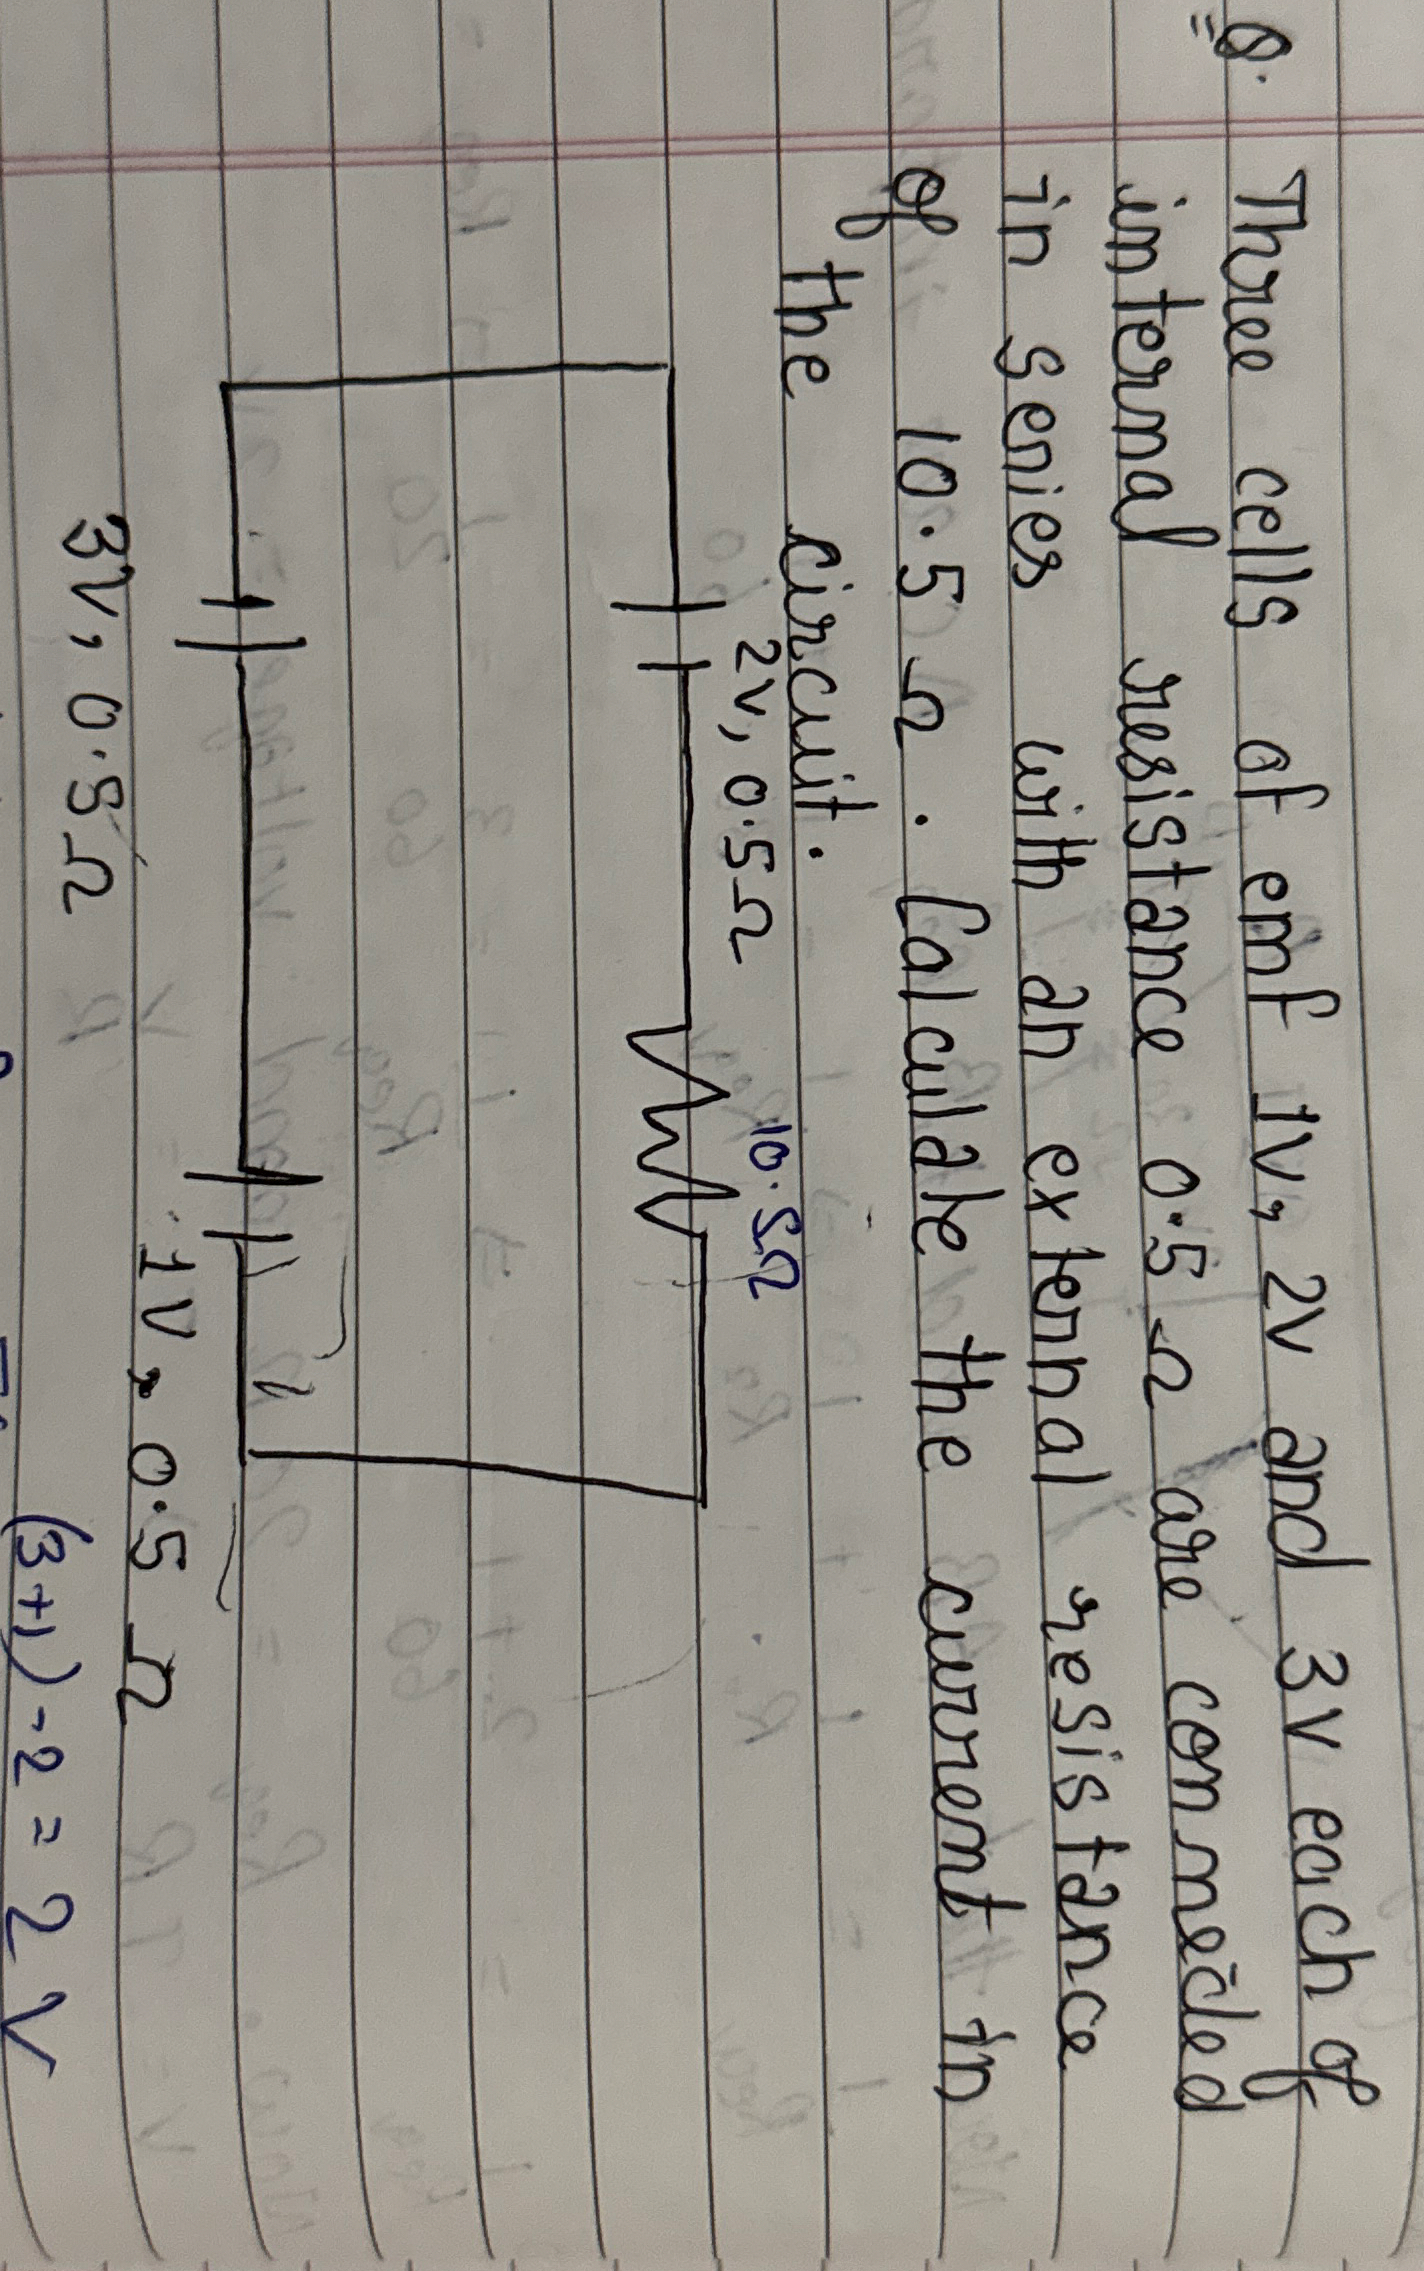 Q. Three cells of emf 1V, 2V and 3V each of
internal resistance 0.5 Ω are connected
in series with an external resistance
of 10.5 Ω. Calculate the current in
the circuit.
2V, 0.5Ω
10.5Ω
3V, 0.5Ω
1V, 0.5 Ω
(3+1)-2 = 2V